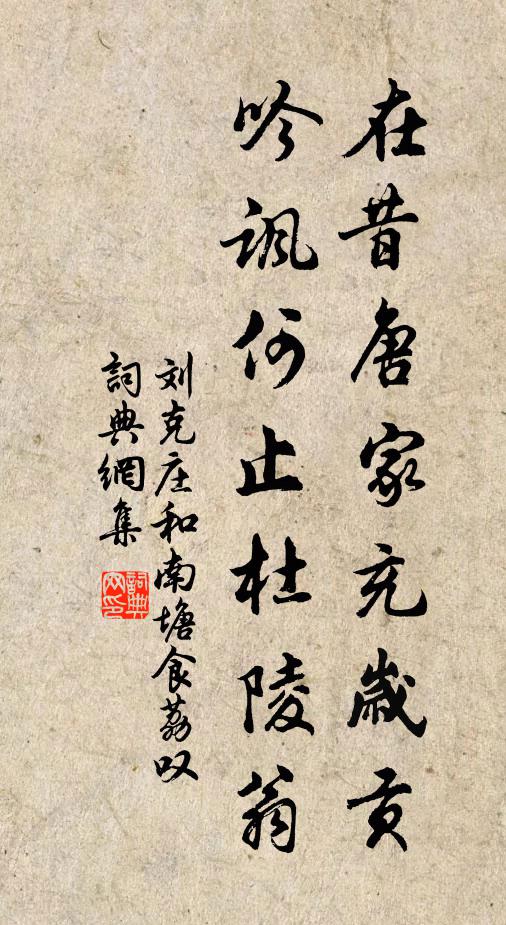 在昔唐家充歲貢
吟諷何止杜陵翁
刘克庄和南塘食荔叹
詞典網集
詞典网印